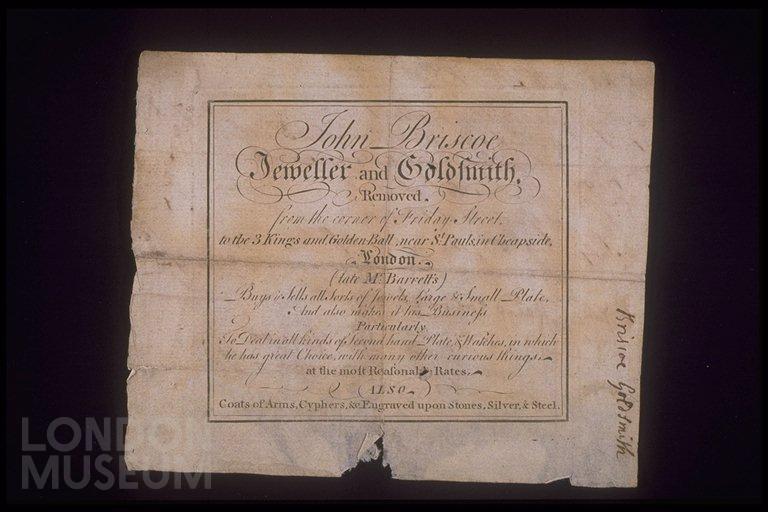 John Briscoe
Jeweller and Goldſmith,
Removed.
from the corner of Friday Street,
to the 3 Kings and Golden Ball, near St. Pauls, in Cheapside,
London.
(late Mr. Barrett's)
Buys & Sells all Sorts of Jewels, Large & Small Plate,
And also makes it his Buſineſs
Particularly
To Deal in all kinds of Second hand Plate, & Watches, in which
he has great Choice, with many other curious things,
at the moſt Reaſonable Rates.
(ALSO)
Coats of Arms, Cyphers, &c Engraved upon Stones, Silver, & Steel.
Briscoe Goldsmith
LONDON
MUSEUM